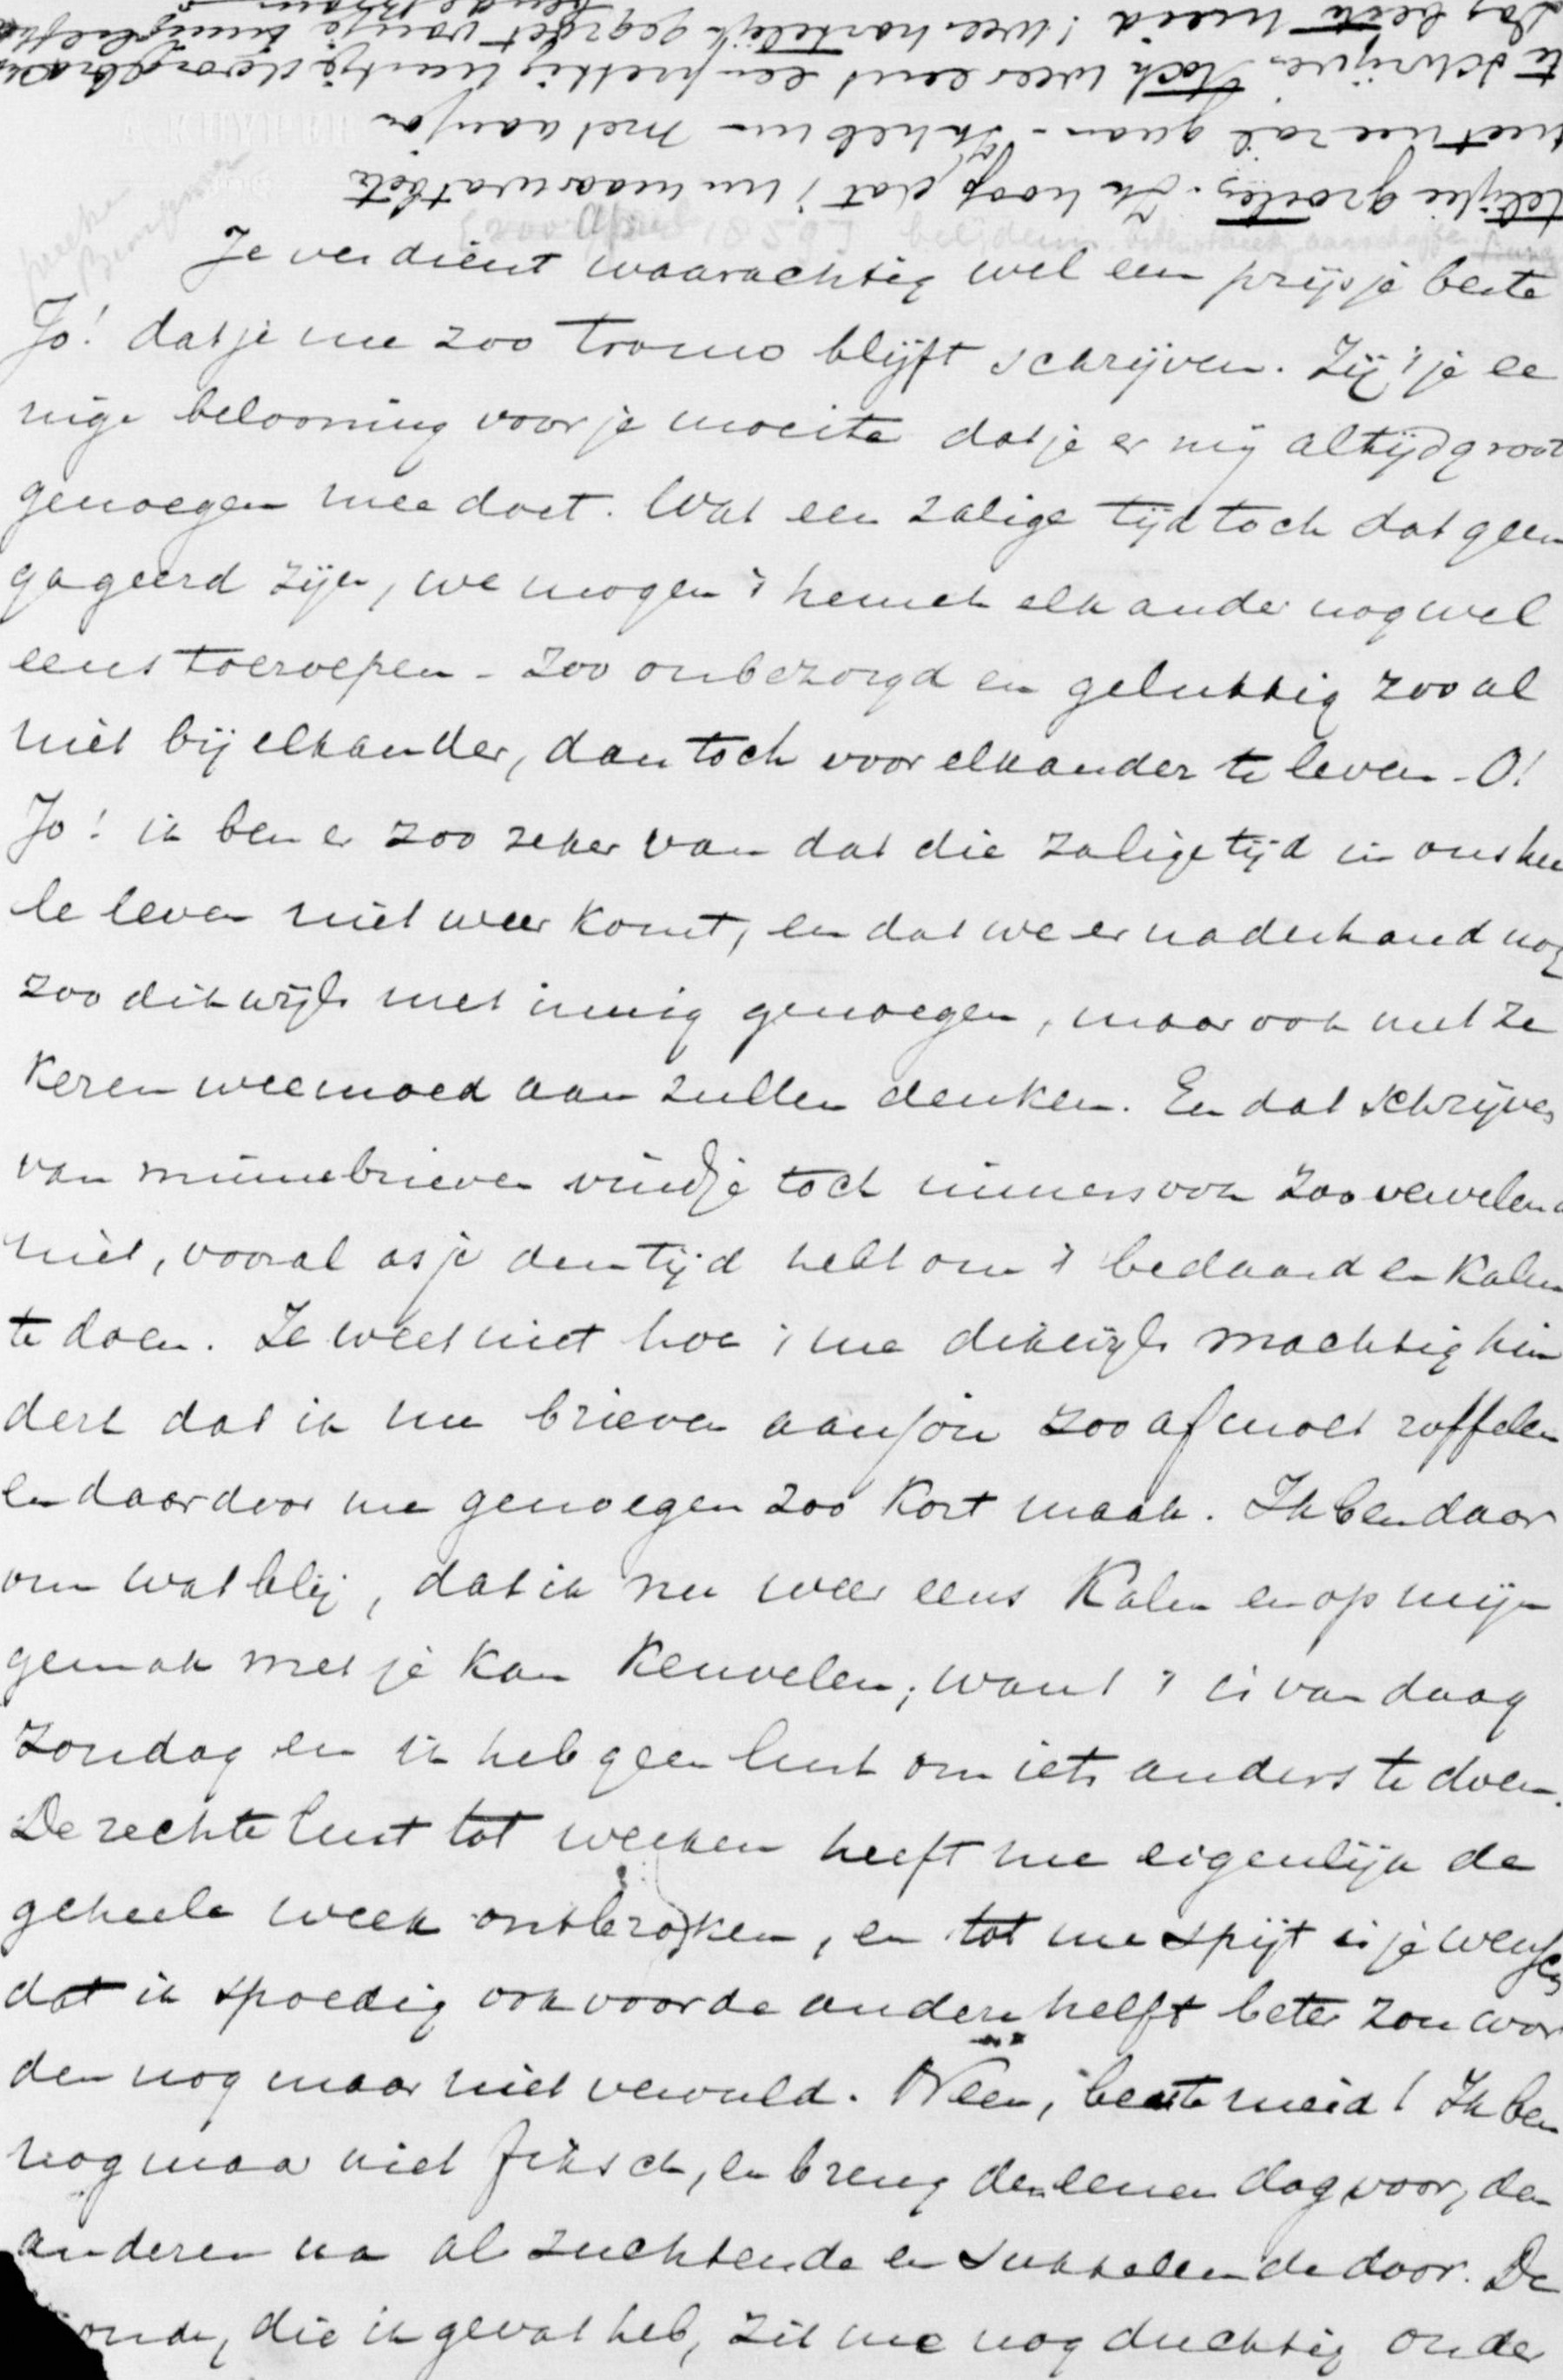 Je verdient waarachtig wel een prijsje beste
Jo! dat je me zoo trouw blijft schrijven. Zij 't je ee
nige belooning voor je moeite dat je er mij altijd groot
genoegen mee doet. Wat een zalige tijd toch dat g'en
gageerd zijn, we mogen 't hemel elkander nog wel
eens toeroepen - zoo onbezorgd en gelukkig zoo al
niet bij elkander, dan toch voor elkander te leven - O!
Jo! ik ben er zoo zeker van dat die zalige tijd in ons hee
le leven niet weer komt, en dat we er naderhand nog
zoo dikwijls met innig genoegen, maar ook met ze
keren weemoed aan zullen denken. En dat schrijven
van minnebrieven vind je toch immers ook zoo vervelend
niet, vooral as je den tijd hebt om 't bedaard en kalm
te doen. Je weet niet hoe 't me dikwijls machtig hin
dert dat ik me brieven aan jou zoo af moet roffelen
en daardoor me genoegen zoo kort maak. Ik ben daar
om wat blij, dat ik nu weer eens kalm en op mijn
gemak met je kan keuvelen; want 't is van daag
Zondag en ik heb geen lust om iets anders te doen.
De rechte lust tot werken heeft me eigenlijk de
geheele week ontbroken, en tot me spijt is je wensch
dat ik spoedig ook voor de andere helft beter zou wor
den nog maar niet vervuld. Neen, beste meid! Ik ben
nog maar niet fiksch, en breng den eenen dag voor, den
anderen na al zuchtende en sukkelende door. De
die ik gevat heb, zit me nog duchtig onder
telijke groeten. Ik hoop, dat 't nu maar wat beter
met me zal gaan - Ik heb nu met aan jou
te schrijven toch weer eens een prettig uurtje doorgebracht
Dag beste meid! Wees hartelijk gegroet van je innig liefh